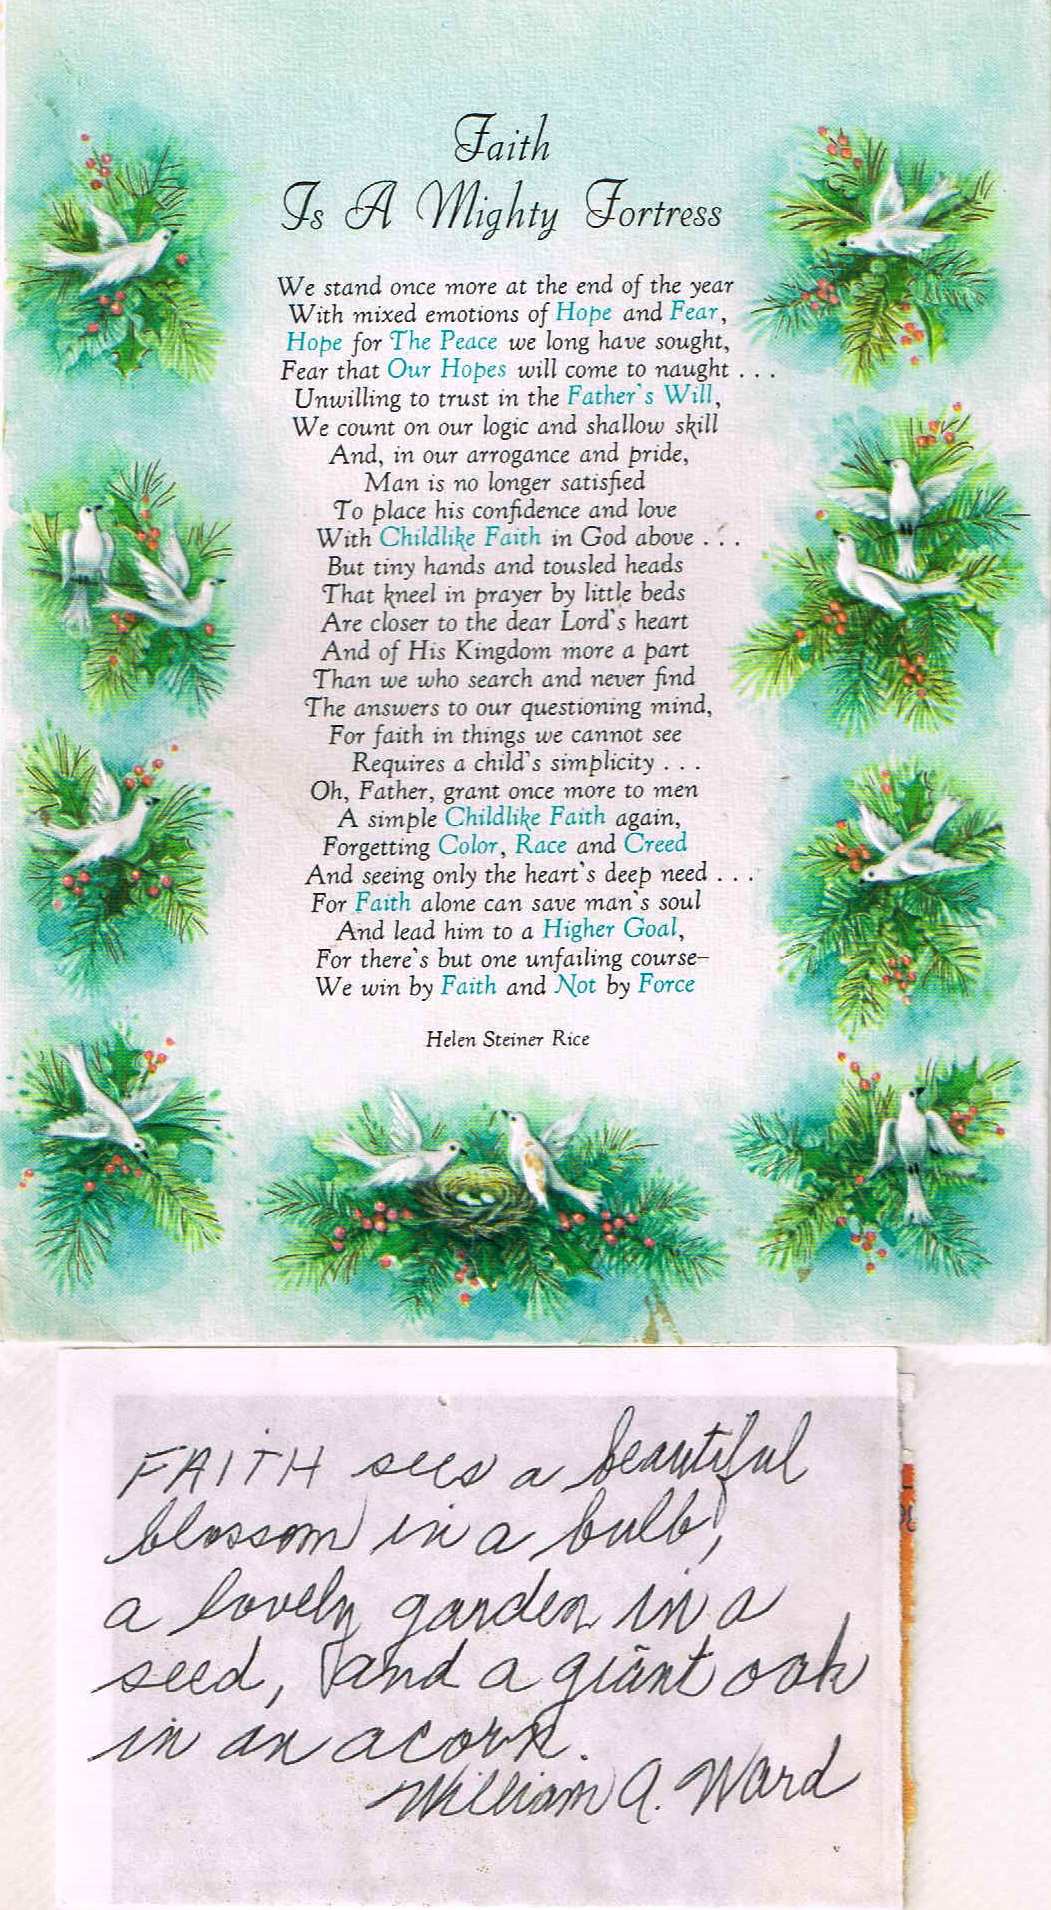 Faith
Is A Mighty Fortress
We stand once more at the end of the year
With mixed emotions of Hope and Fear,
Hope for The Peace we long have sought,
Fear that Our Hopes will come to naught . . .
Unwilling to trust in the Father's Will,
We count on our logic and shallow skill
And, in our arrogance and pride,
Man is no longer satisfied
To place his confidence and love
With Childlike Faith in God above . . .
But tiny hands and tousled heads
That kneel in prayer by little beds
Are closer to the dear Lord's heart
And of His Kingdom more a part
Than we who search and never find
The answers to our questioning mind,
For faith in things we cannot see
Requires a child's simplicity . . .
Oh, Father, grant once more to men
A simple Childlike Faith again,
Forgetting Color, Race and Creed
And seeing only the heart's deep need . . .
For Faith alone can save man's soul
And lead him to a Higher Goal,
For there's but one unfailing course—
We win by Faith and Not by Force
Helen Steiner Rice
FAITH sees a beautiful
blossom in a bulb,
a lovely garden in a
seed, and a giant oak
in an acorn.
William A. Ward